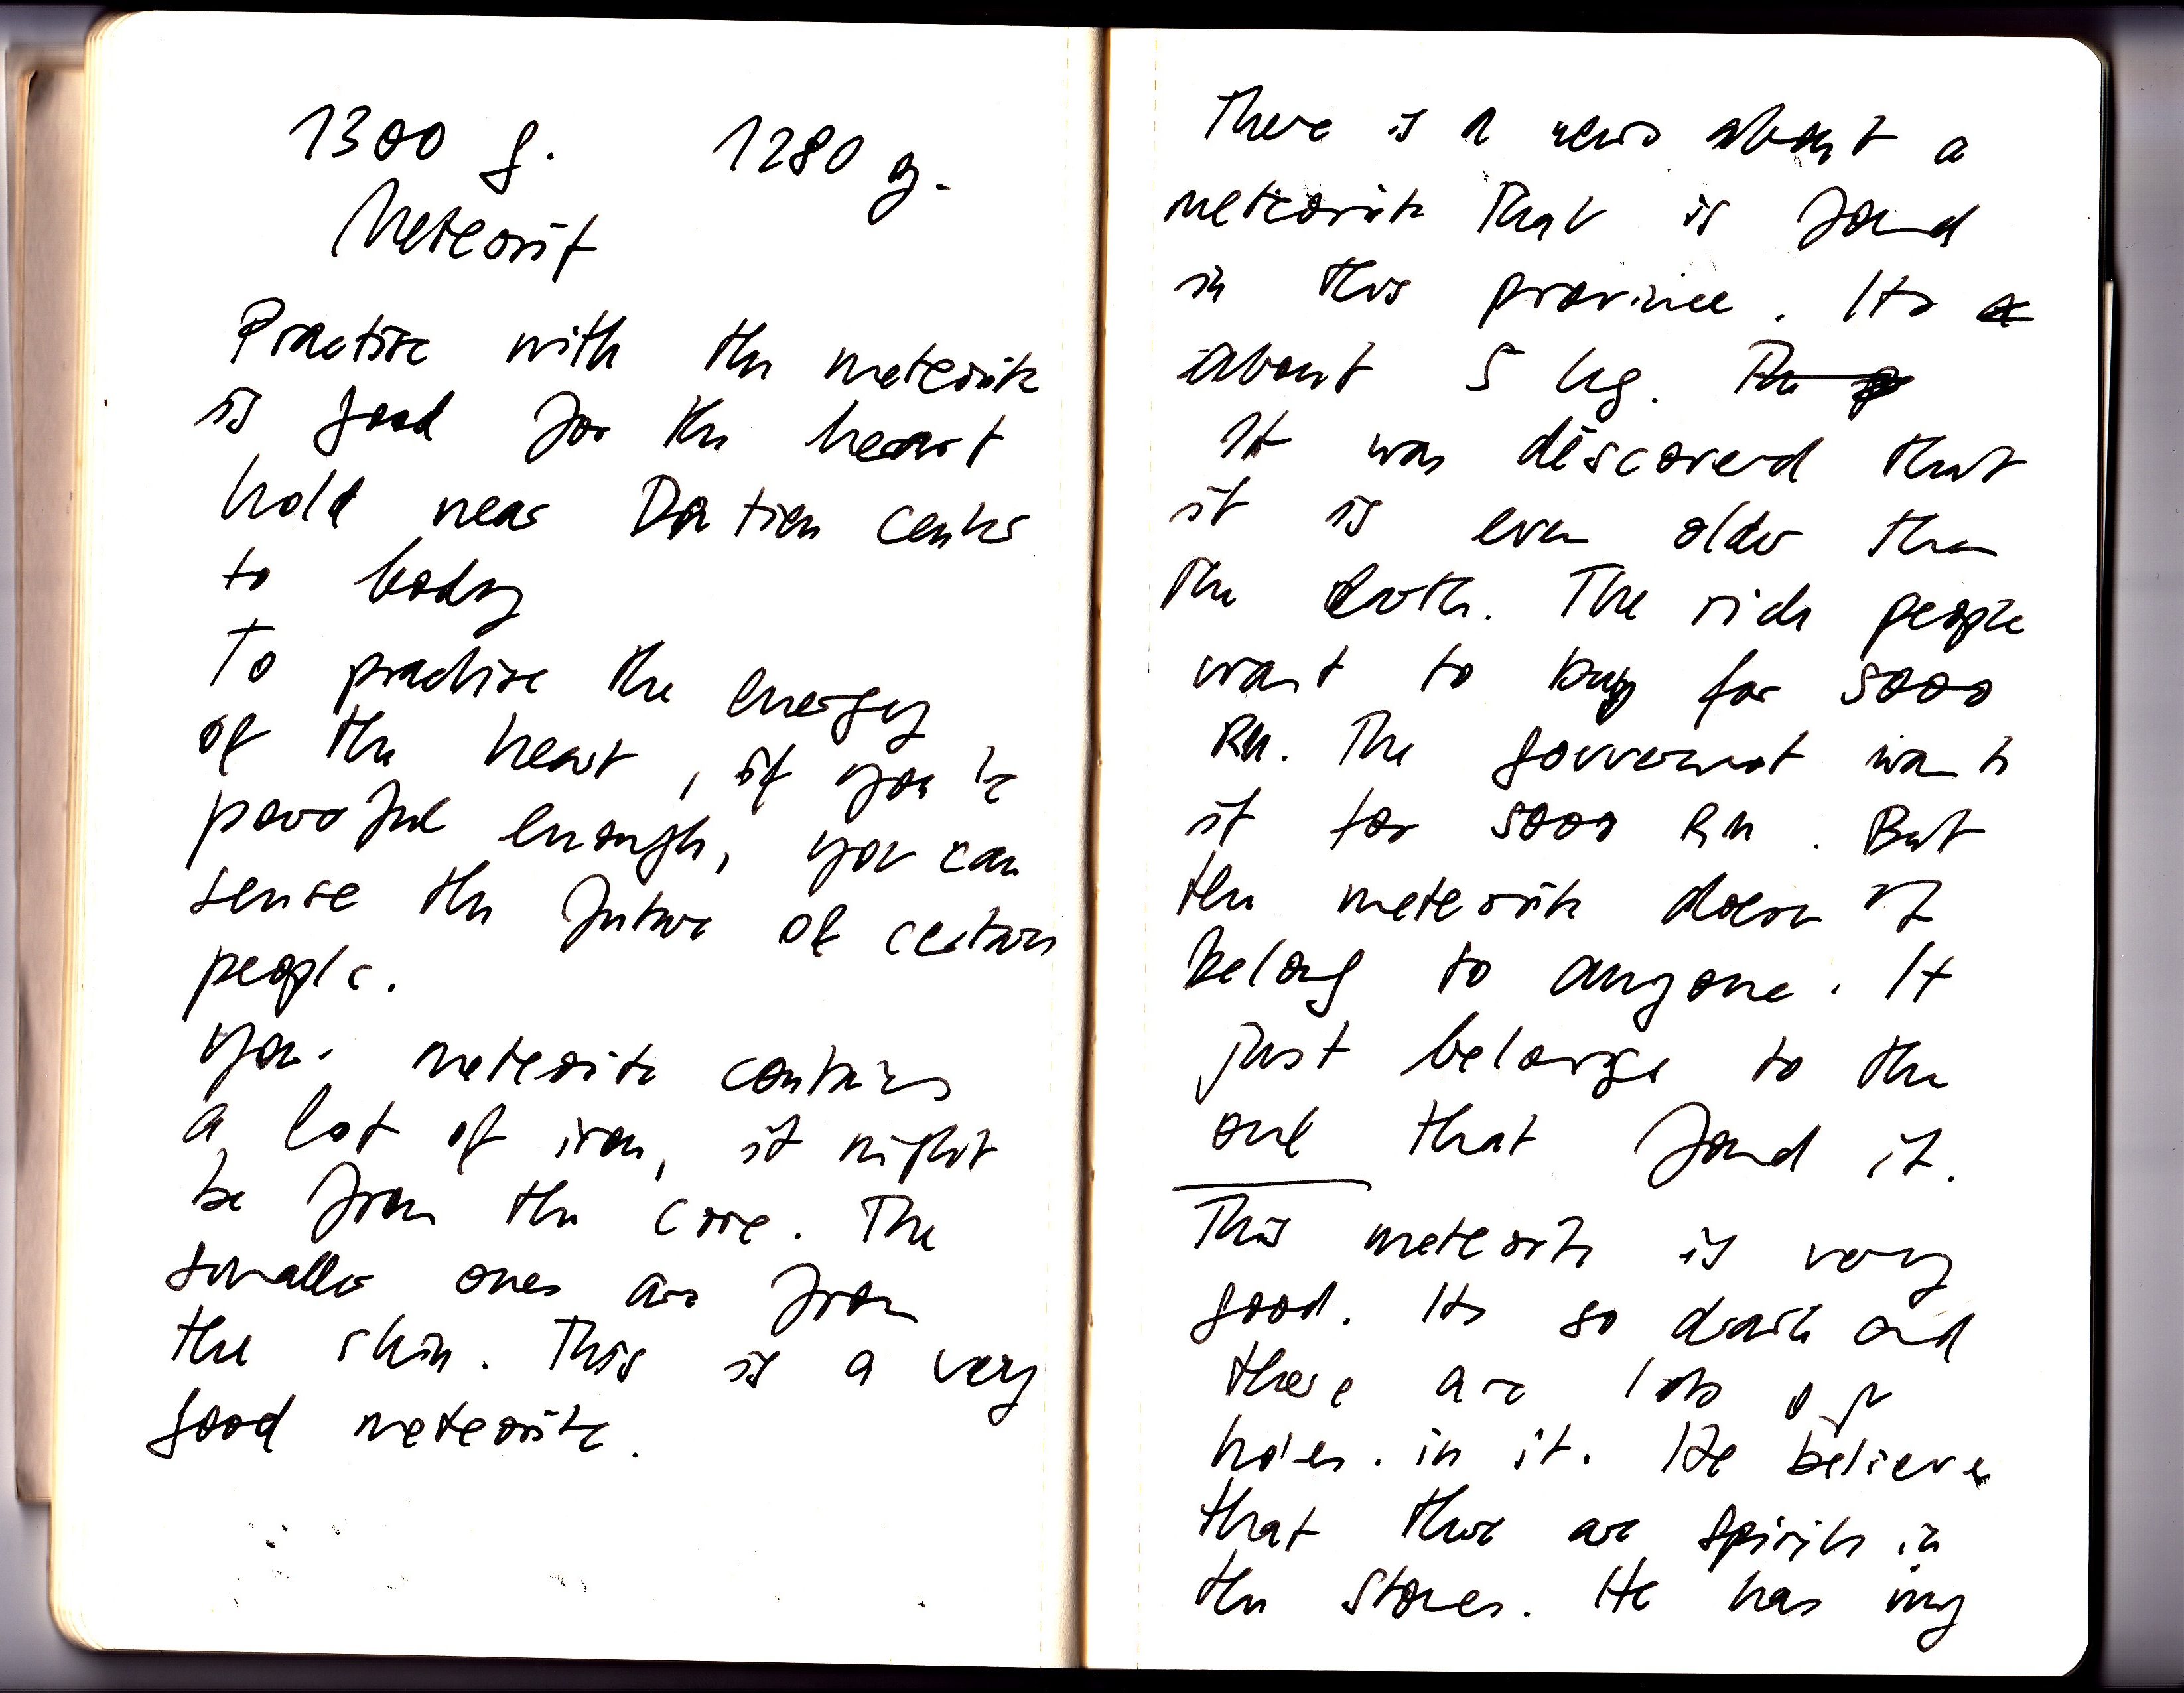 1300 g. 1280 g.
Meteorit
Practise with the meteorite
is good for the heart
hold near Dan tien center
to body
To practise the energy
of the heart, if you're
powerful enough, you can
sense the future of certain
people.
your meteorite contains
a lot of iron, it might
be from the core. The
smaller ones are from
the skin. This is a very
good meteorite.
There is a news about a
meteorite that is found
in this province. Its a
about 5 kg. The
It was discovered that
it is even older than
the earth. The rich people
want to buy for 5000
RM. The government wants
it for 5000 RM. But
the meteorite doesn't
belong to anyone. It
just belongs to the
one that found it.
This meteorite is very
good. Its so dark and
there are lots of
holes. in it. He believes
that there are spirits in
the stones. He has my